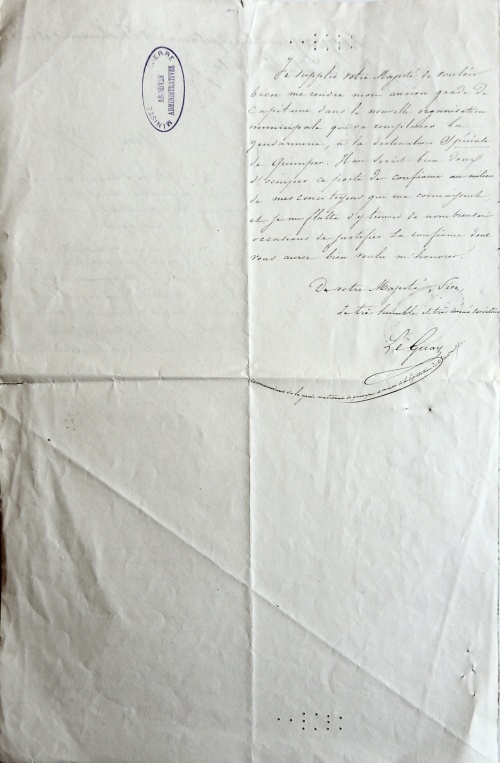 MINISTÈRE GUERRE
ARCHIVES
ADMINISTRATIVES
Je supplie votre Majesté de vouloir
bien me rendre mon ancien grade de
Capitaine dans la nouvelle organisation
municipale qui va remplacer la
gendarmerie, à la destination Spéciale
de Quimper. Il me serait bien doux
d'occuper ce poste de confiance au milieu
de mes concitoyens qui me connaissent,
et je me flatte d'y trouver de nombreuses
occasions de justifier la confiance dont
vous aurez bien voulu m'honorer.
De votre Majesté, Sire,
Le très humble et très dévoué serviteur
Le Guay
commandant de la garde nationale de quimper